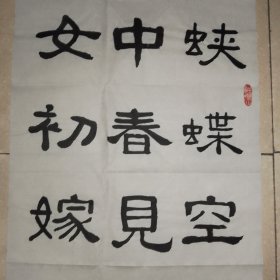 蛱蝶空
中春見
女初嫁